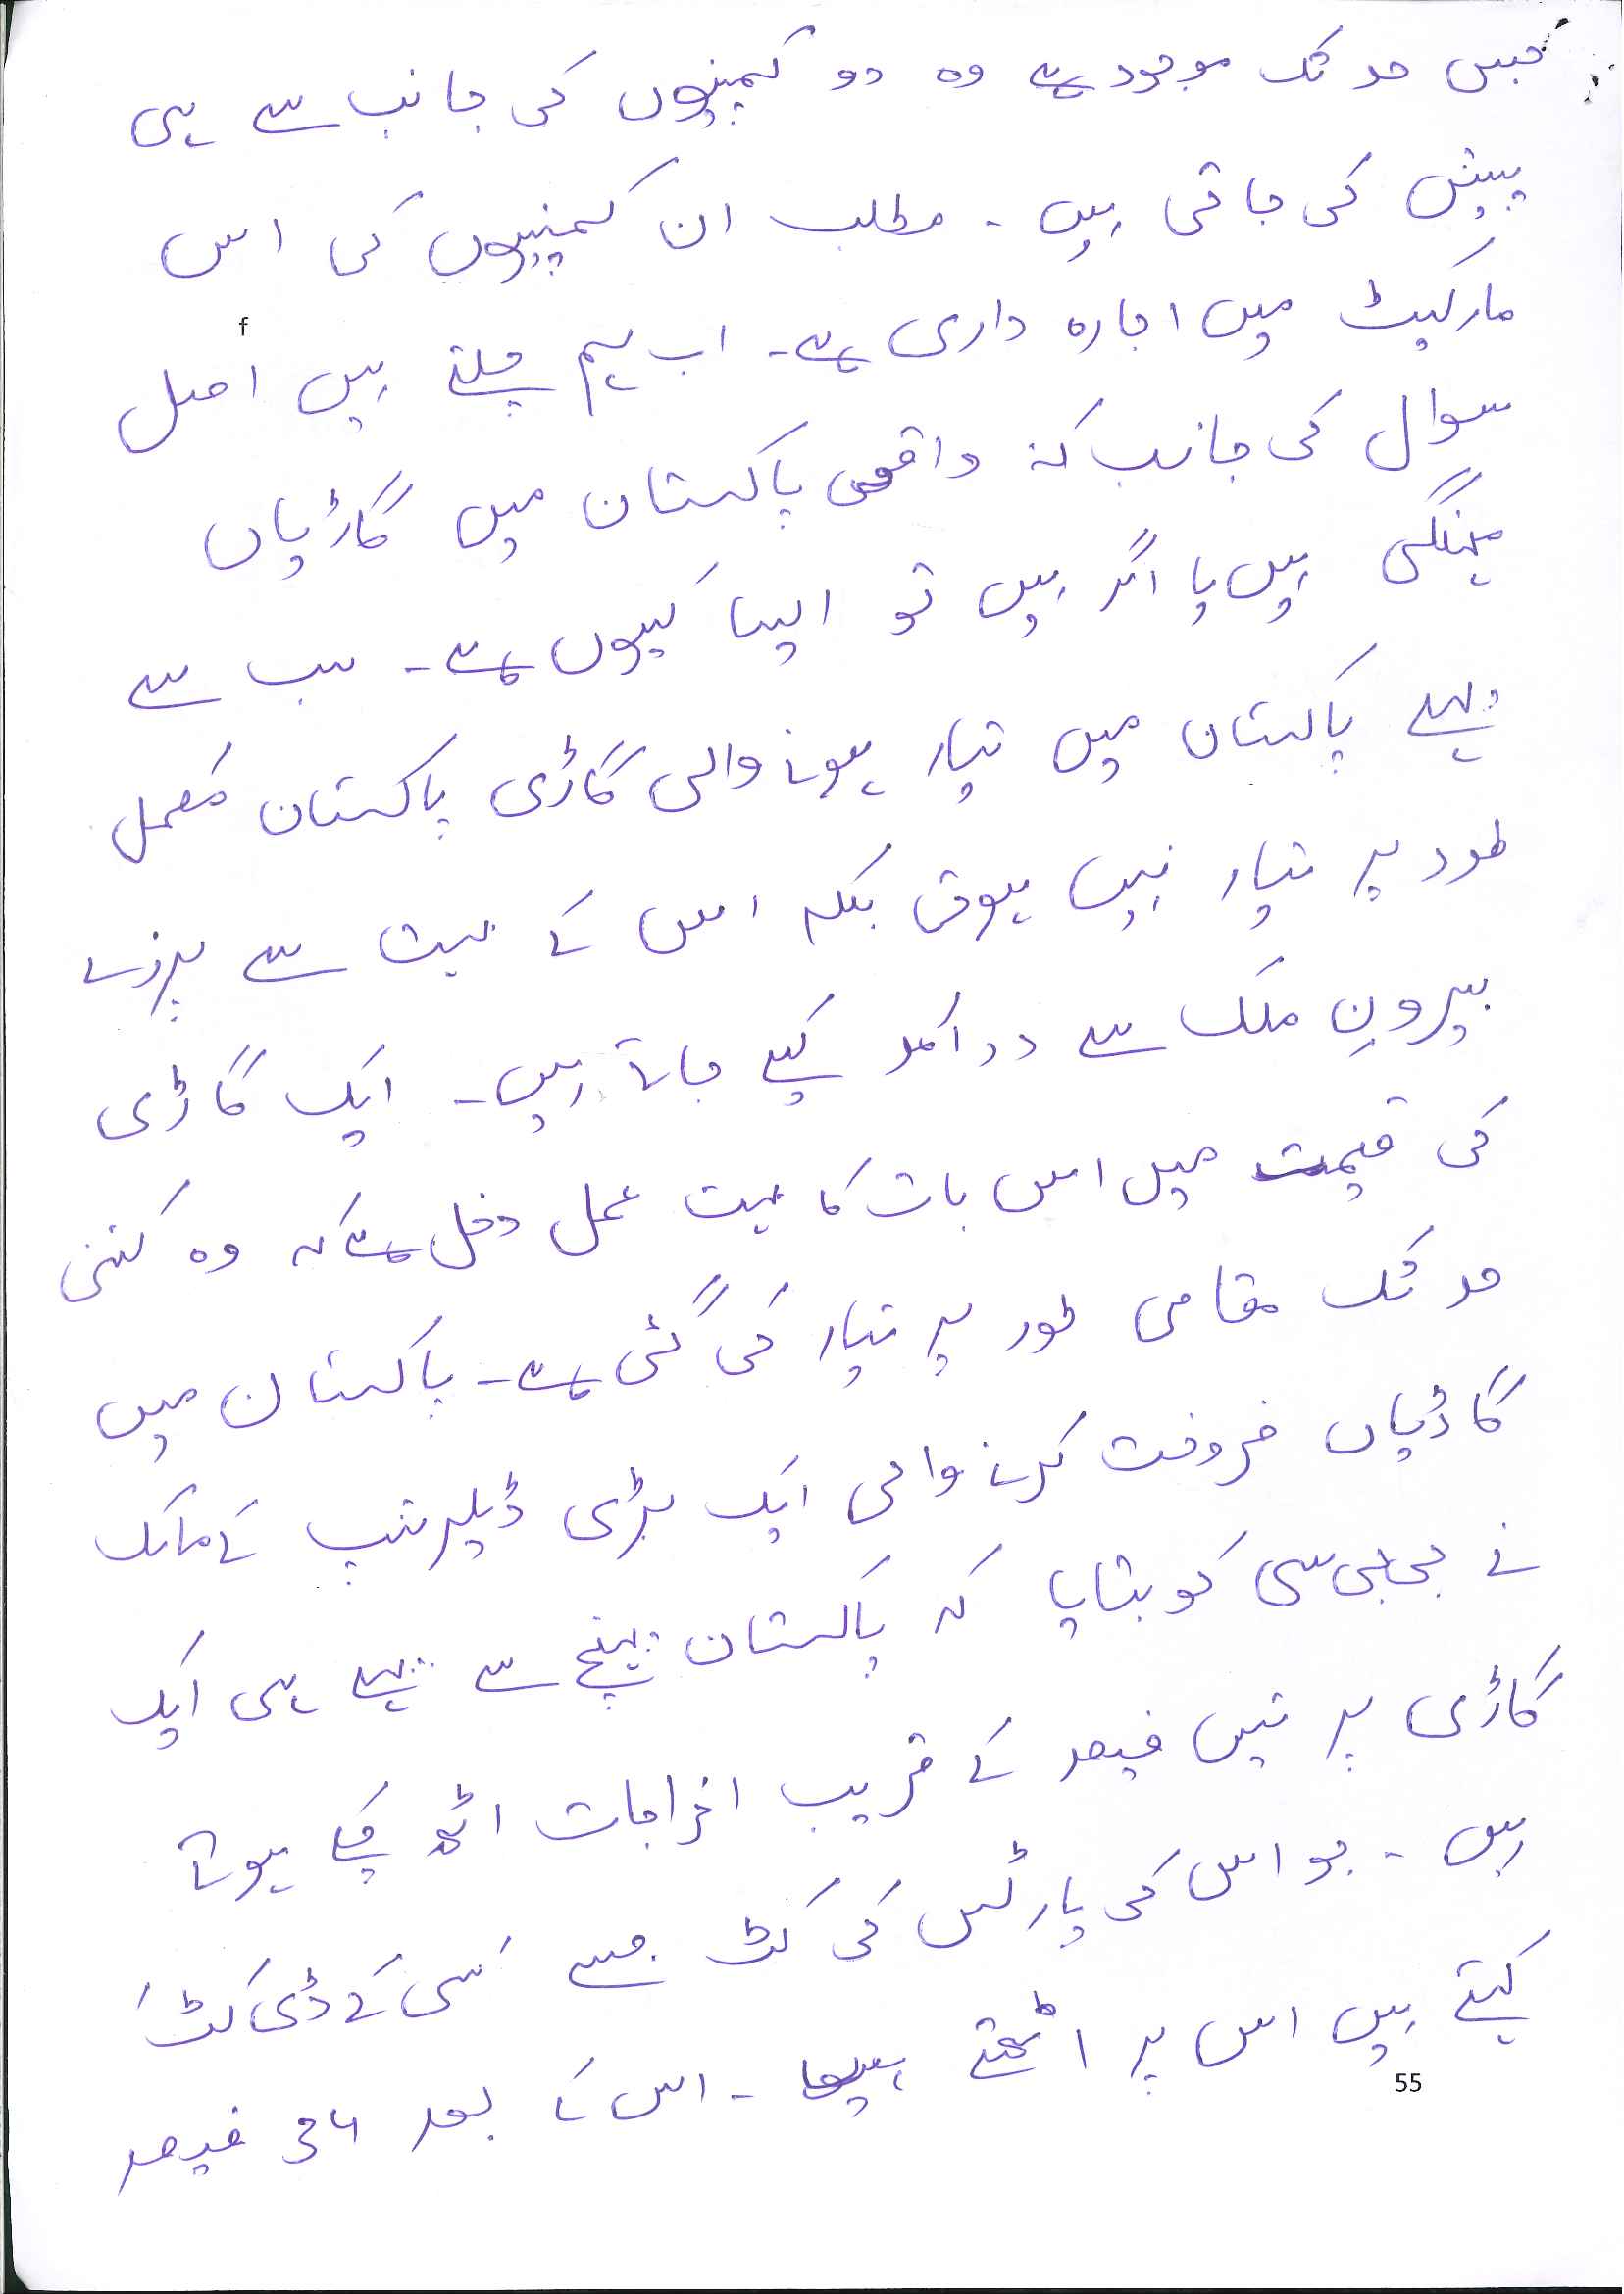 جس حد تک موجود ہے وہ دو کمپنیوں کی جانب سے ہی
پیش کی جاتی ہیں ۔ مطلب ان کمپنیوں کی اس
مارکیٹ میں اجارہ داری ہے۔ اب ہم چلتے ہیں اصل
f
سوال کی جانب کہ واقعی پاکستان میں گاڑیاں
مہنگی ہیں یا اگر ہیں تو ایسا کیوں ہے۔ سب سے
پہلے پاکستان میں تیار ہونے والی گاڑی پاکستان مکمل
طور پر تیار نہیں ہوتی بلکہ اس کے بہت سے پرزے
بیرونِ ملک سے درآمد کیے جاتے ہیں۔ ایک گاڑی
کی قیمت میں اس بات کا بہت عمل دخل ہے کہ وہ کتنی
حد تک مقامی طور پر تیار کی گئی ہے۔ پاکستان میں
گاڑیاں فروخت کرنے والی ایک بڑی ڈیلرشپ کے مالک
نے بی بی سی کو بتایا کہ پاکستان پہنچنے سے پہلے ہی ایک
گاڑی پر تیس فیصد کے قریب اخراجات اٹھ چکے ہوتے
ہیں ۔ جو اس کی پارٹس کی کٹ جسے 'سی کے ڈی کٹ'
کہتے ہیں اس پر اٹھتے ہیں ۔ اس کے بعد 34 فیصد
55